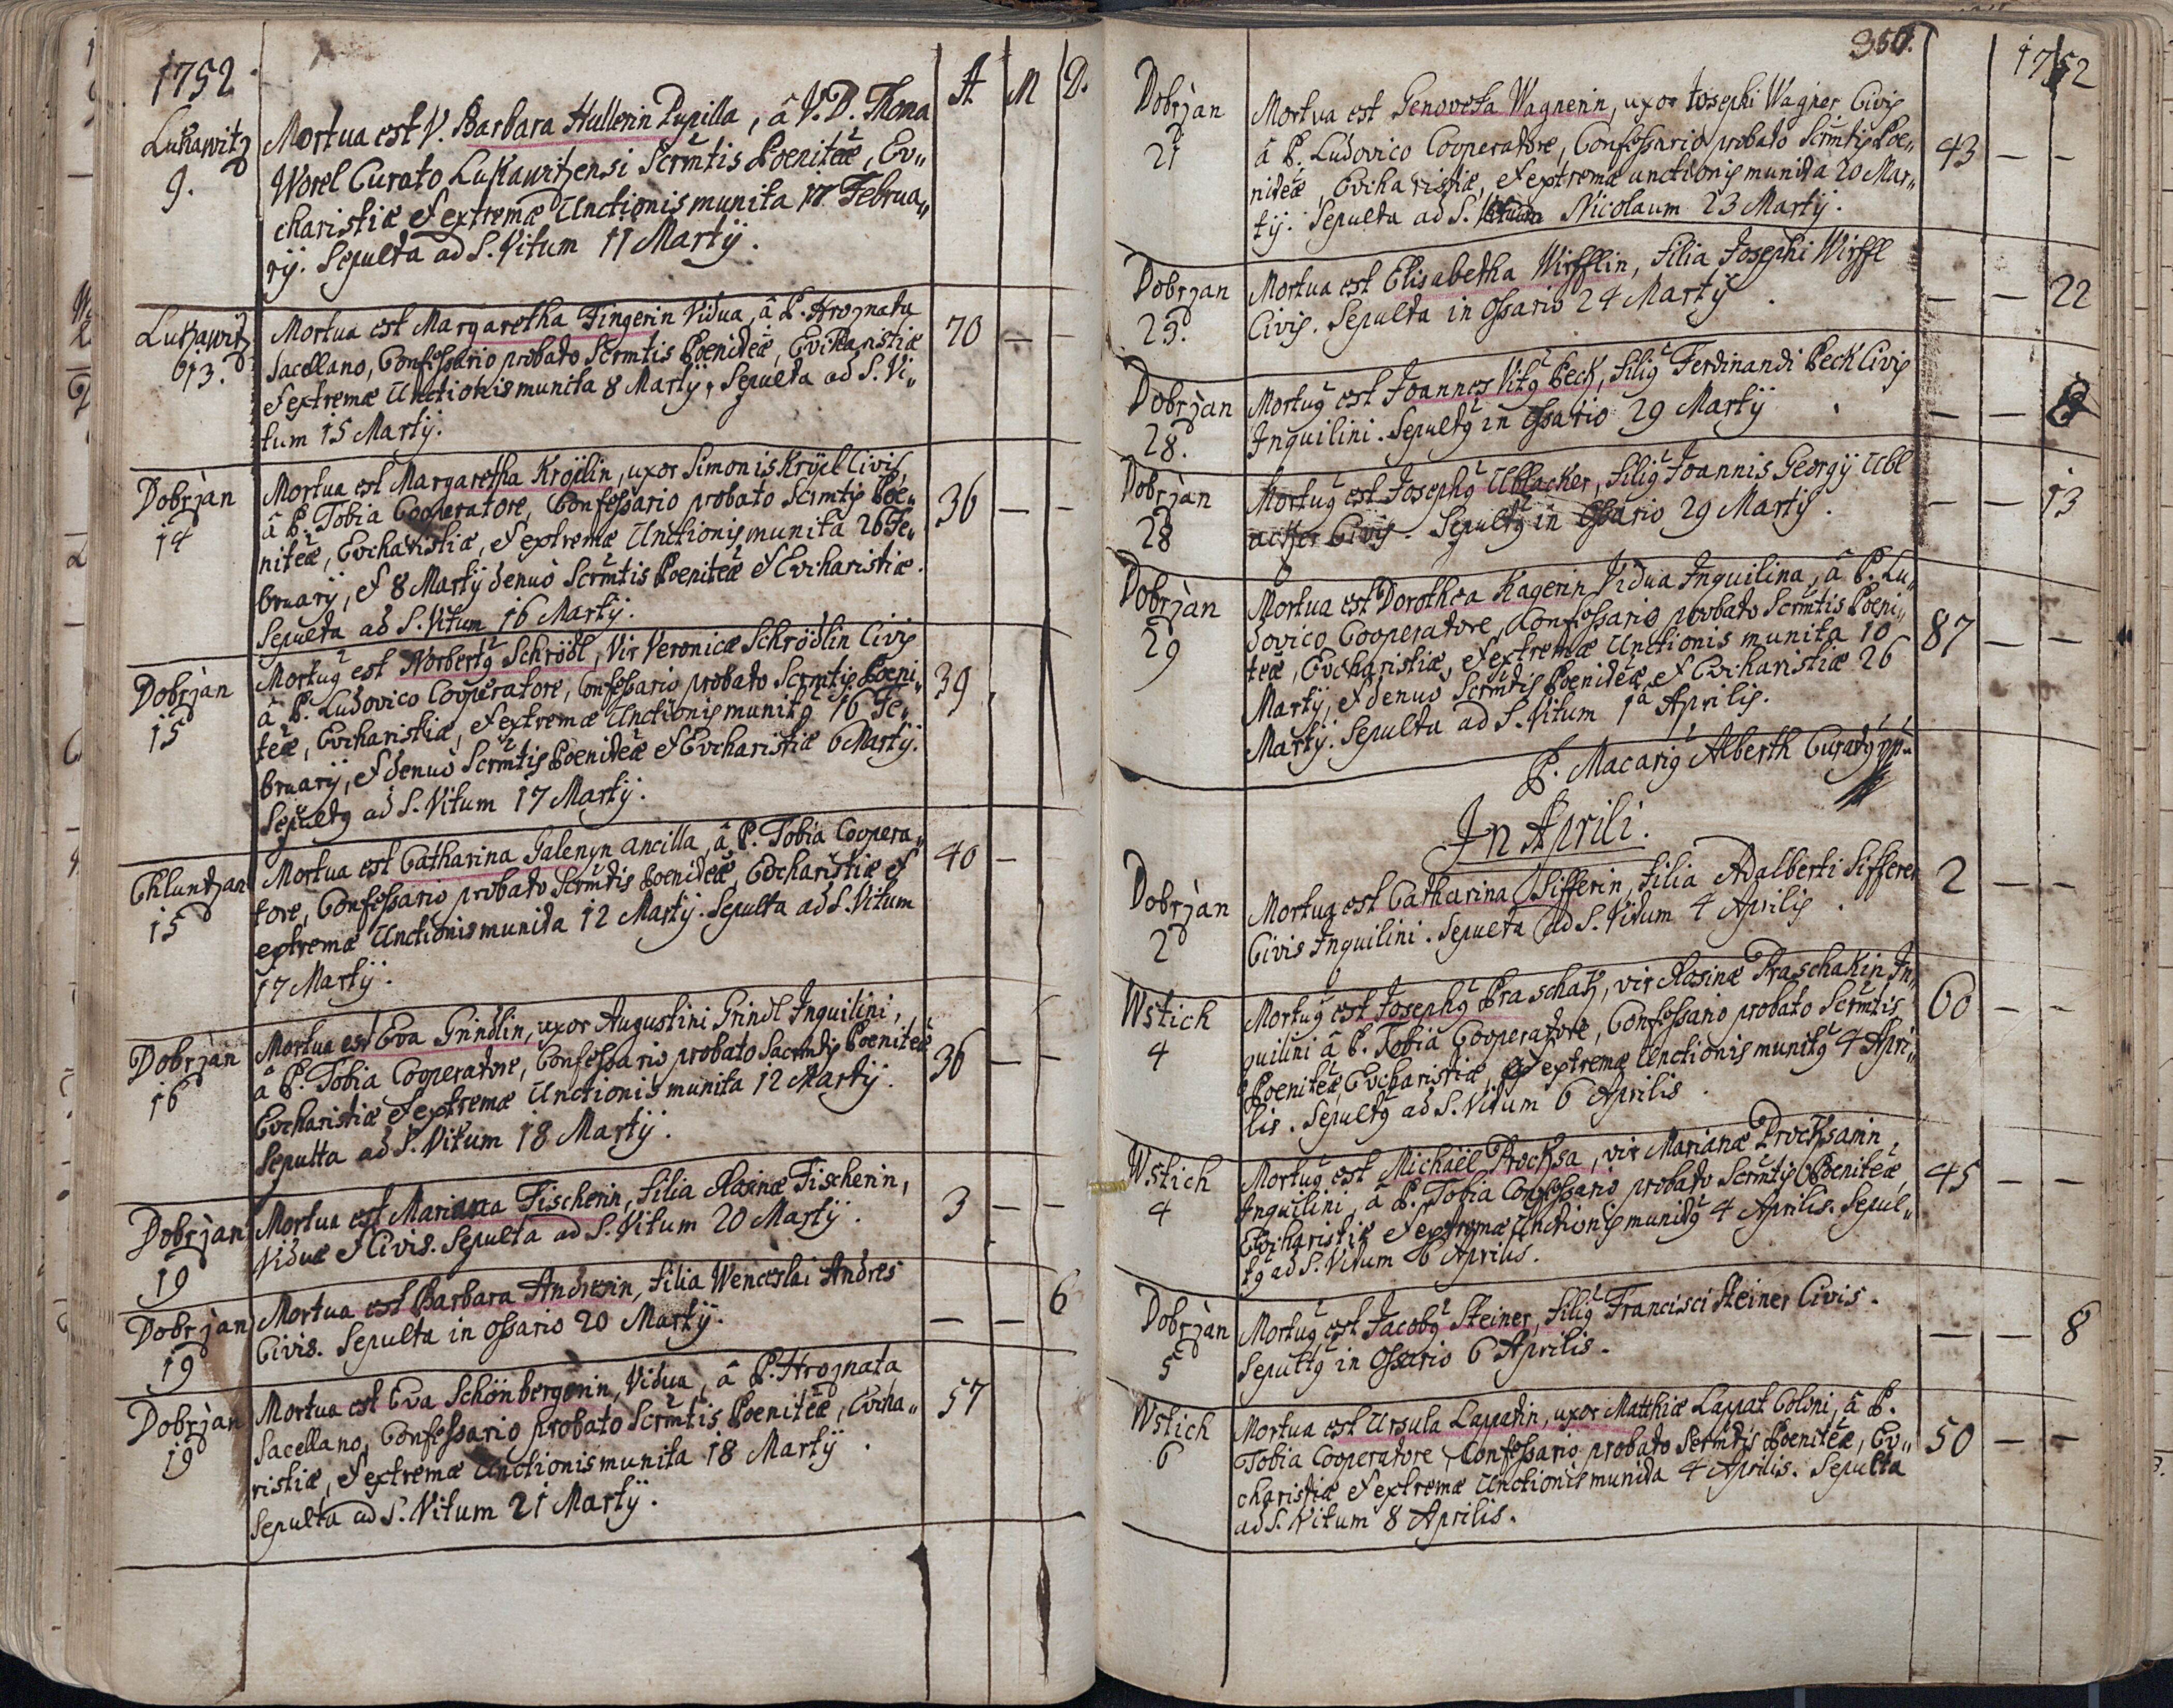 1752. A. M D.
Lukawitz Mortua est V. Barbara Hullerin Pupilla, â V. D. Thoma
9. Worel Curato Lukawitzensi Scrmtis Poeniteæ, Eu„
charistiæ et extremæ Unctionis munita 17 Februa„
rij. Sepulta ad S. Vitum 11 Martij.
Lukawitz Mortua est Margaretha Fingerin Vidua, â P. Hroznata 70 —
13. Sacellano, Confessario probato Scrmtis Poeniteæ, Eucharistiæ
et extremæ Unctionis munita 8 Martij, Sepulta ad S. Vi„
tum 15 Martij.
Dobrzàn Mortua est Margaretha Kröplin, uxor Simonis Kröpl Civis,
14 â P. Tobia Cooperatore, Confessario probato Scrmtis Poe„ 36 — —
niteæ, Eucharistiæ, et extremæ Unctionis munita 26 Fe„
bruarij, et 8 Martij denuò Scrmtis Poeniteæ et Eucharistiæ.
Sepulta ad S. Vitum 16 Martij.
Dobrzàn Mortuꝰ est Norbertꝰ Schrödl, Vir Veronicæ Schrödlin Civis
15 â P. Ludovico Cooperatore, Confessario probato Scrmtis Poeni„ 39
teæ, Eucharistiæ, et extremæ Unctionis munitꝰ 16 Fe„
bruarij, et denuò Scrmtis Poeniteæ et Eucharistiæ 6 Martij.
Sepultꝰ ad S. Vitum 17 Martij.
Chluntzan Mortua est Catharina Galenyn ancilla, â P. Tobia Coopera„ 40 —
15 tore, Confessario probato Scrmtis Poeniteæ, Eucharistiæ et
extremæ Unctionis munita 12 Martij. Sepulta ad S. Vitum
17 Martij.
Dobrzàn Mortua est Eva Grindlin, uxor Augustini Grindl Inquilini,
16 â P. Tobia Cooperatore, Confessario probato Sacrmtis Poeniteæ 36 — —
Eucharistiæ et extremæ Unctionis munita 12 Martij.
Sepulta ad S. Vitum 18 Martij.
Dobrzàn Mortua est Mariana Fischerin, filia Rosinæ Fischerin, 3 — —
19 Viduæ et Civis. Sepulta ad S. Vitum 20 Martij.
Dobrzàn Mortua est Barbara Andresin, filia Wenceslai Andres — — 6
19 Civis. Sepulta in Ossario 20 Martij.
Dobrzàn Mortua est Eva Schönbergerin, Vidua, â P. Hroznata 57
19 Sacellano, Confessario probato Scrmtis Poeniteæ, Eucha„
ristiæ, et extremæ Unctionis munita 18 Martij.
Sepulta ad S. Vitum 21 Martij.
350. 1752
Dobrzàn Mortua est Genovefa Wagnerin, uxor Josephi Wagner Civis
21 â P. Ludovico Cooperatore, Confessario probato Scrmtis Poe„ 43 — —
niteæ, Eucharistiæ, et extremæ unctionis munita 20 Mar„
tij. Sepulta ad S. Nicolaum 23 Martij.
Dobrzan Mortua est Elisabetha Wirfflin, filia Josephi Wirffl — — 22
23. Civis. Sepulta in Ossario 24 Martij.
Dobrzàn Mortuꝰ est Joannes Vitꝰ Peck, filiꝰ Ferdinandi Peck Civis — — 8
28. Inquilini. Sepultꝰ in Ossario 29 Martij
Dobrzàn Mortuꝰ est Josephꝰ Ublacker, filiꝰ Joannis Georgij Ubl — — 13
28 acker Civis. Sepultꝰ in Ossario 29 Martij.
Dobrzàn Mortua est Dorothea Kagerin Vidua Inquilina, â P. Lu„
29 dovico Cooperatore, Confessario probato Scrmtis Poeni„ 87 — —
teæ, Eucharistiæ, et extremæ Unctionis munita 10
Martij, et denuò Scrmtis Poeniteæ et Eucharistiæ 26
Martij. Sepulta ad S. Vitum 1a Aprilis.
P. Macariꝰ Alberth Curatꝰ
In Aprili.
Dobrzàn Mortua est Catharina Sifferin, filia Adalberti Sifferer 2 — —
2 Civis Inquilini. Sepulta ad S. Vitum 4 Aprilis.
Wstich Mortuꝰ est Josephꝰ Praschak, vir Rosinæ Praschakin In„ 60 — —
4 quilini â P. Tobia Cooperatore, Confessario probato Scrmtis
Poeniteæ, Eucharistiæ, et extremæ Unctionis munitꝰ 4 Apri„
lis. Sepultꝰ ad S. Vitum 6 Aprilis.
Wstich Mortuꝰ est Michaël Procksa, vir Marianæ Procksarin, 45 — —
4 Inquilini, â P. Tobia Confessario probato Scrmtis Poeniteæ,
Eucharistiæ et extremæ Unctionis munitꝰ 4 Aprilis. Sepul„
tꝰ ad S. Vitum 6 Aprilis.
Dobrzàn Mortuꝰ est Jacobꝰ Steiner, filiꝰ Francisci Steiner Civis. — — 8
5 Sepultꝰ in Ossario 6 Aprilis.
Wstich Mortua est Ursula Lappatin, uxor Matthiæ Lappat Coloni, â P.
6 Tobia Cooperatore, Confessario probato Scrmtis Poeniteæ, Eu„ 50 — —
charistiæ et extremæ Unctionis munita 4 Aprilis. Sepulta
ad S. Vitum 8 Aprilis.